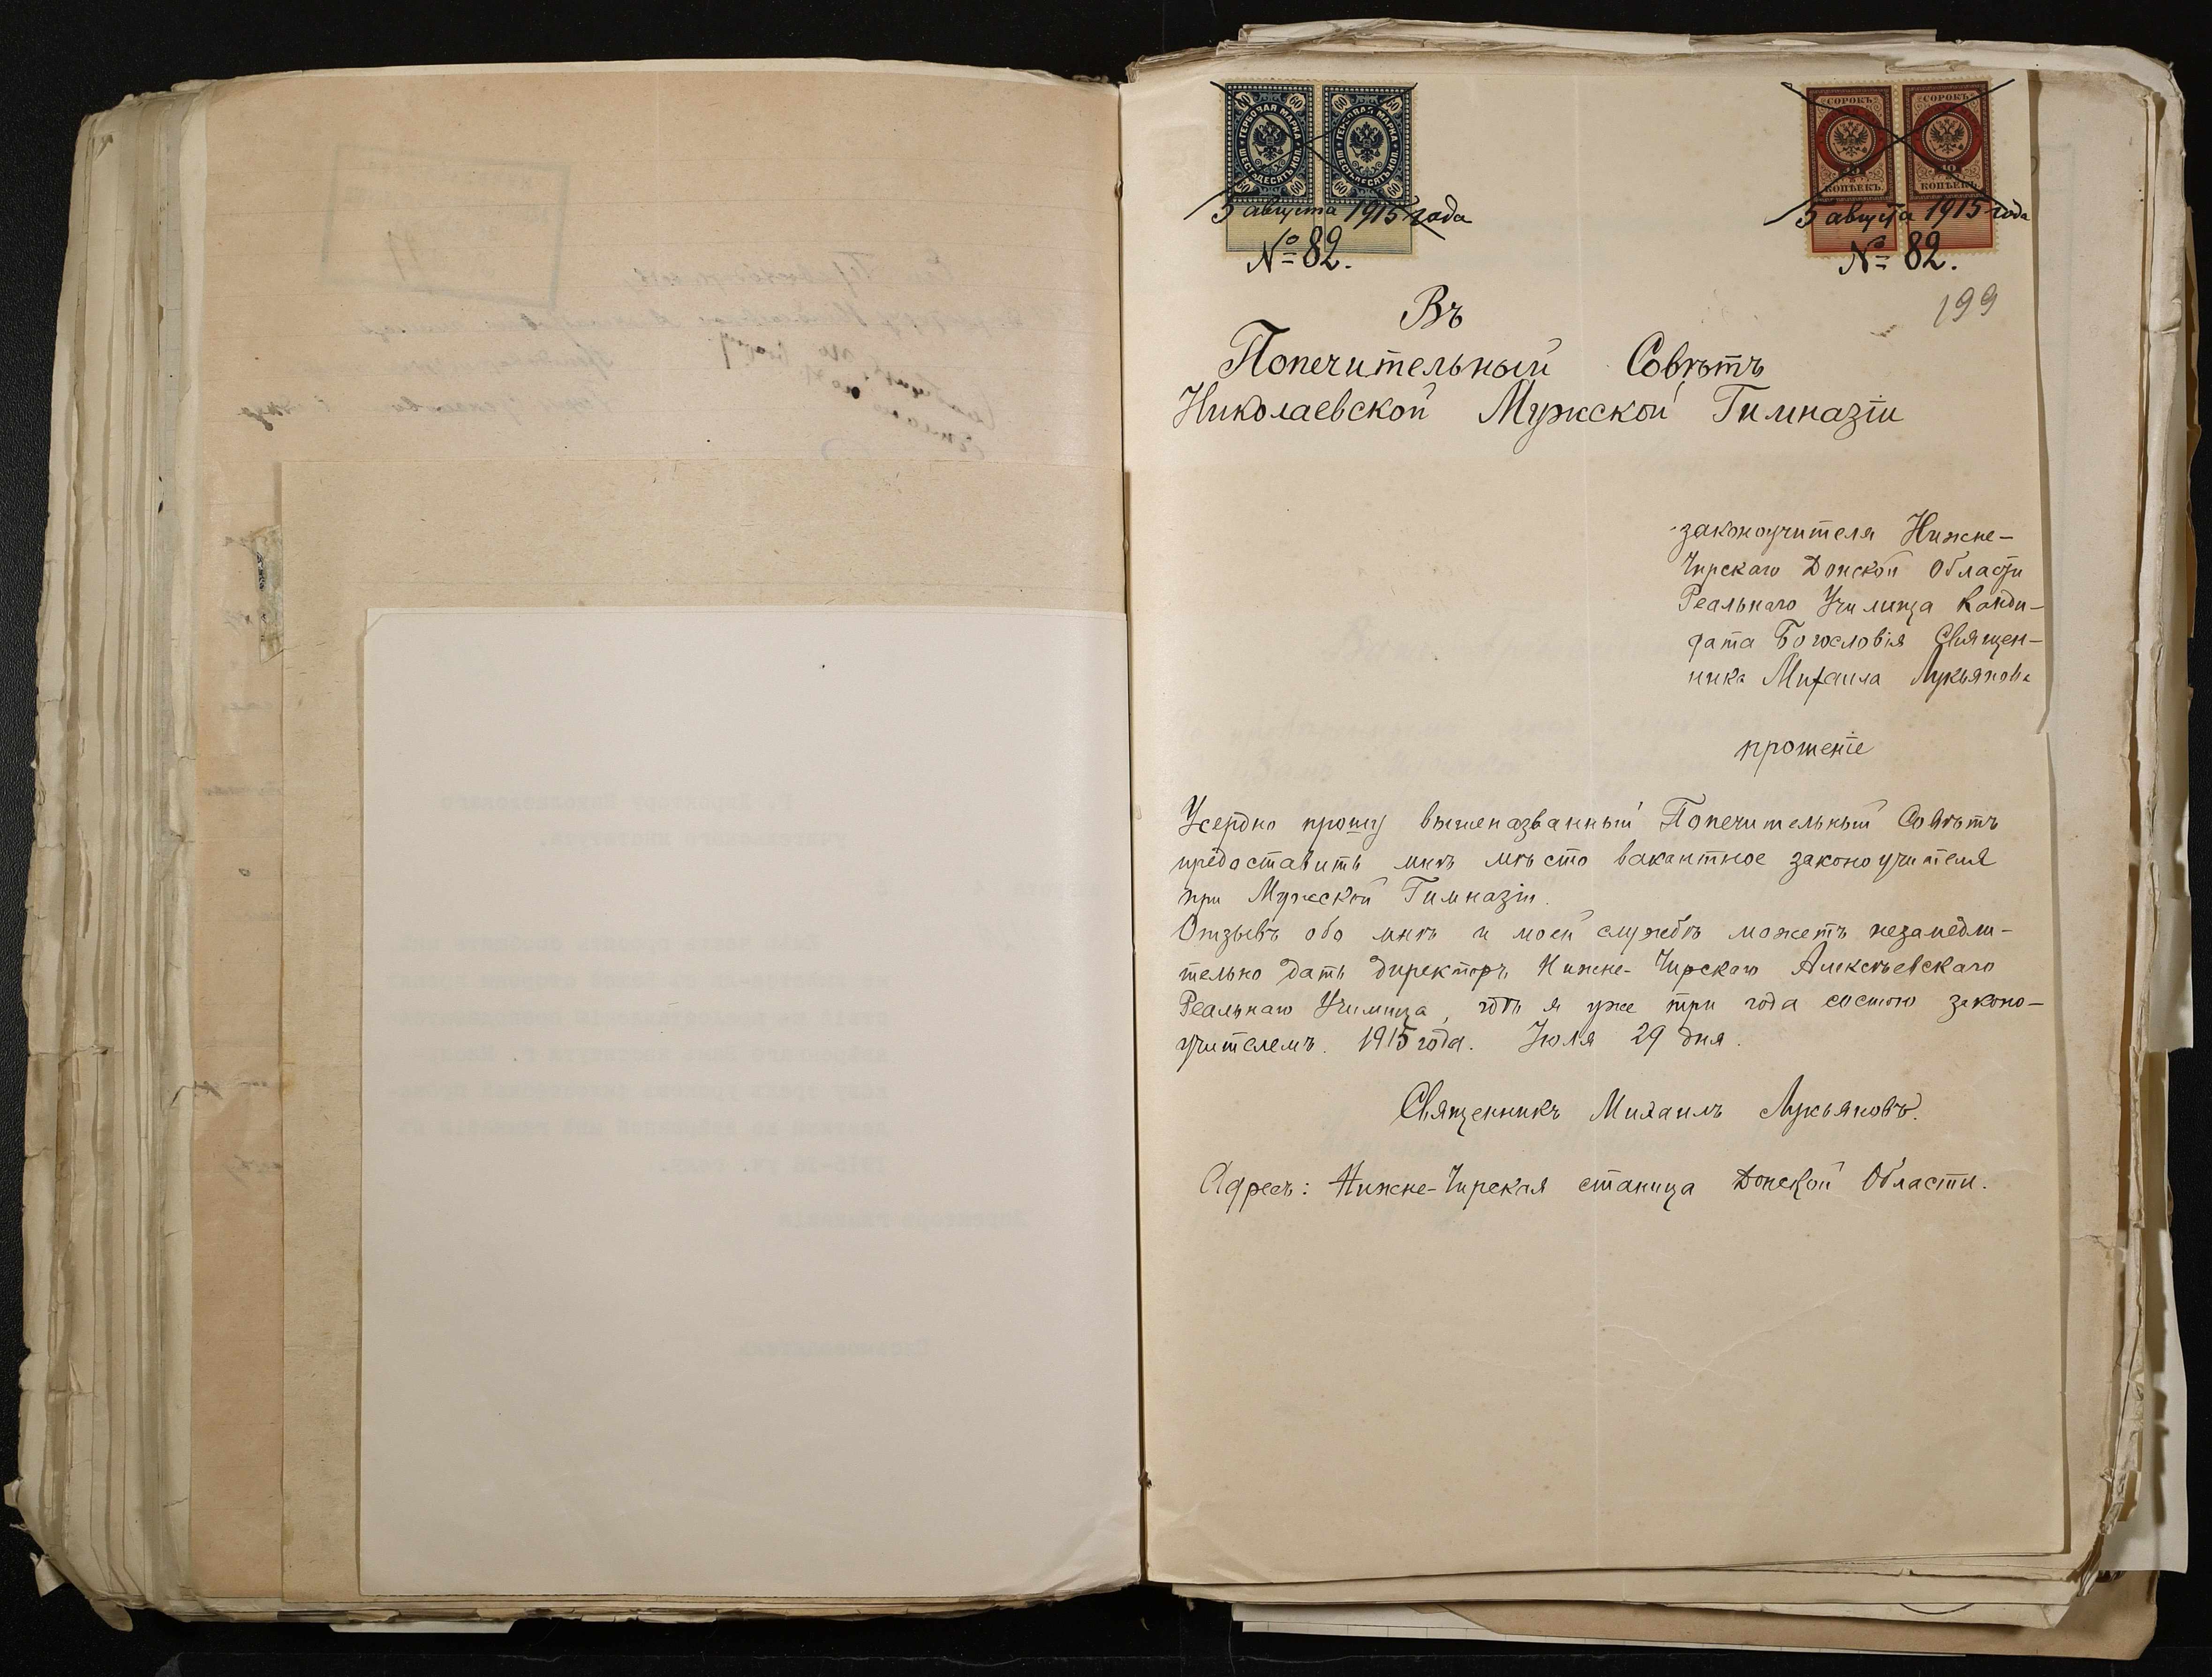 60 60 60 60
ГЕРБОВАЯ МАРКА ГЕРБОВАЯ МАРКА
ШЕСТЬДЕСЯТЪ КОП. ШЕСТЬДЕСЯТЪ КОП.
60 60 60 60
СОРОКЪ СОРОКЪ
40 40
КОПѢЕКЪ КОПѢЕКЪ
5 августа 1915 года
№ 82.
5 августа 1915 года
№ 82.
199
Въ
Попечительный Совѣтъ
Николаевской Мужской Гимназіи
законоучителя Нижне-
Чирскаго Донской Области
Реальнаго Училища Канди-
дата Богословія Священ-
ника Михаила Лукьянова
прошеніе
Усердно прошу вышеназванный Попечительный Совѣтъ
предоставить мнѣ мѣсто вакантное законоучителя
при Мужской Гимназіи.
Отзывъ обо мнѣ и моей службѣ можетъ незамедли-
тельно дать директоръ Нижне-Чирскаго Алексѣевскаго
Реальнаго Училища, гдѣ я уже три года состою законо-
учителемъ. 1915 года. Іюля 29 дня.
Священникъ Михаилъ Лукьяновъ.
Адресъ: Нижне-Чирская станица Донской Области.